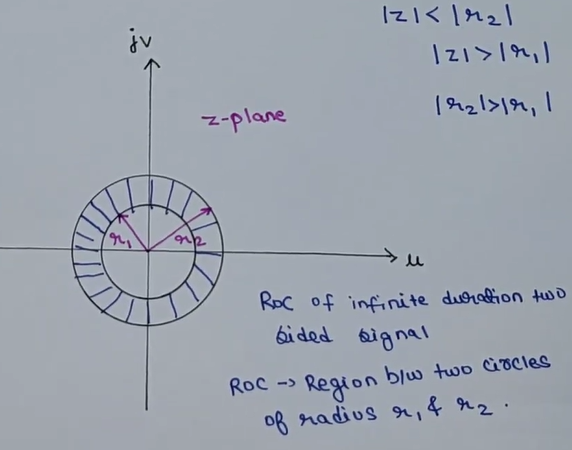 |z| < |r2|
jv
|z| > |r1|
|r2| > |r1|
z-plane
r1
r2
u
ROC of infinite duration two
sided signal
ROC → Region b/w two circles
of radius r1 & r2.